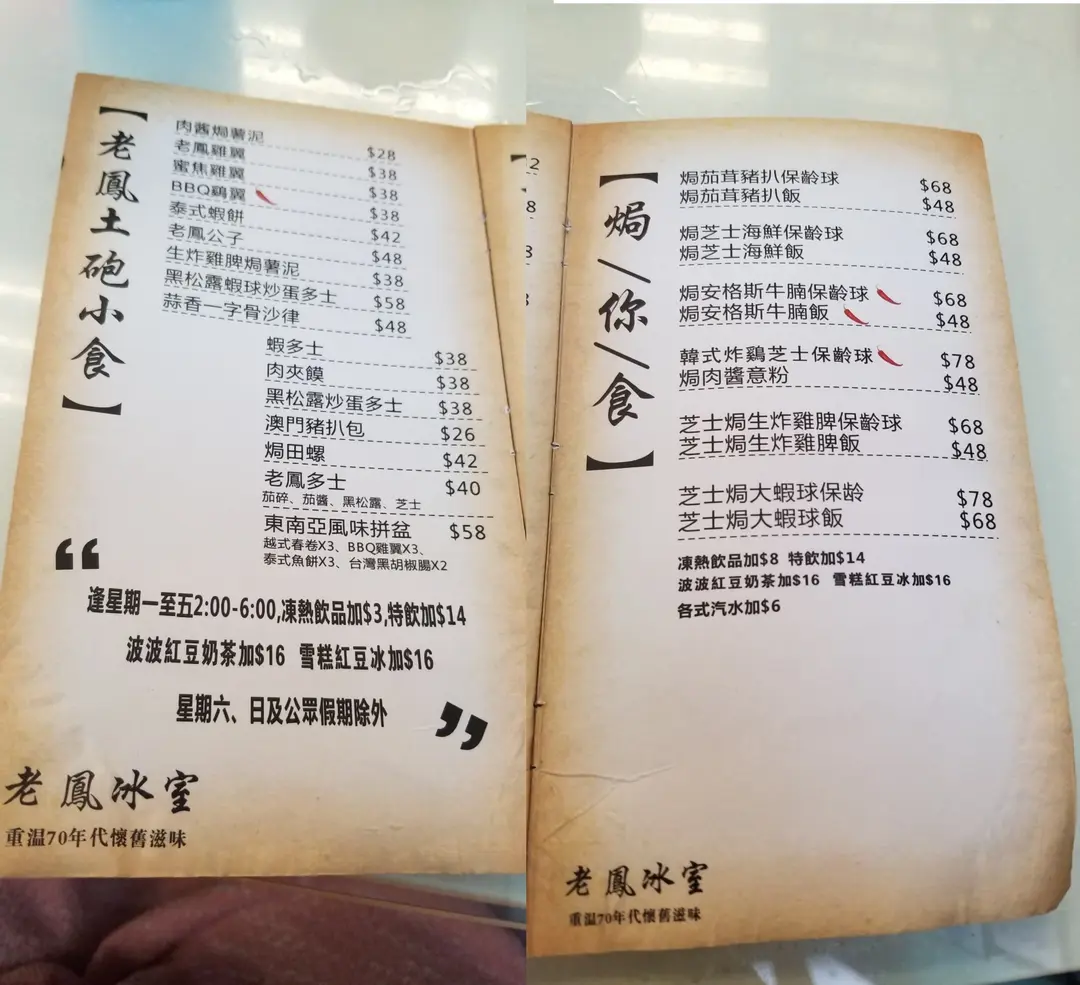 【老鳳土砲小食】
肉醬焗薯泥 $28
老鳳雞翼 $38
蜜焦雞翼 $38
BBQ鷄翼 $38
泰式蝦餅 $42
老鳳公子 $48
生炸雞脾焗薯泥 $38
黑松露蝦球炒蛋多士 $58
蒜香一字骨沙律 $48
蝦多士 $38
肉夾饃 $38
黑松露炒蛋多士 $38
澳門豬扒包 $26
焗田螺 $42
老鳳多士 $40
茄碎、茄醬、黑松露、芝士
東南亞風味拼盆 $58
越式春卷X3、BBQ雞翼X3、
泰式魚餅X3、台灣黑胡椒腸X2
“逢星期一至五2:00-6:00,凍熱飲品加$3,特飲加$14
波波紅豆奶茶加$16 雪糕紅豆冰加$16
星期六、日及公眾假期除外”
老鳳冰室
重温70年代懷舊滋味
2
8
8
【焗/你/食】
焗茄茸豬扒保齡球 $68
焗茄茸豬扒飯 $48
焗芝士海鮮保齡球 $68
焗芝士海鮮飯 $48
焗安格斯牛腩保齡球 $68
焗安格斯牛腩飯 $48
韓式炸鷄芝士保齡球 $78
焗肉醬意粉 $48
芝士焗生炸雞脾保齡球 $68
芝士焗生炸雞脾飯 $48
芝士焗大蝦球保龄 $78
芝士焗大蝦球飯 $68
凍熱飲品加$8 特飲加$14
波波紅豆奶茶加$16 雪糕紅豆冰加$16
各式汽水加$6
老鳳冰室
重温70年代懷舊滋味